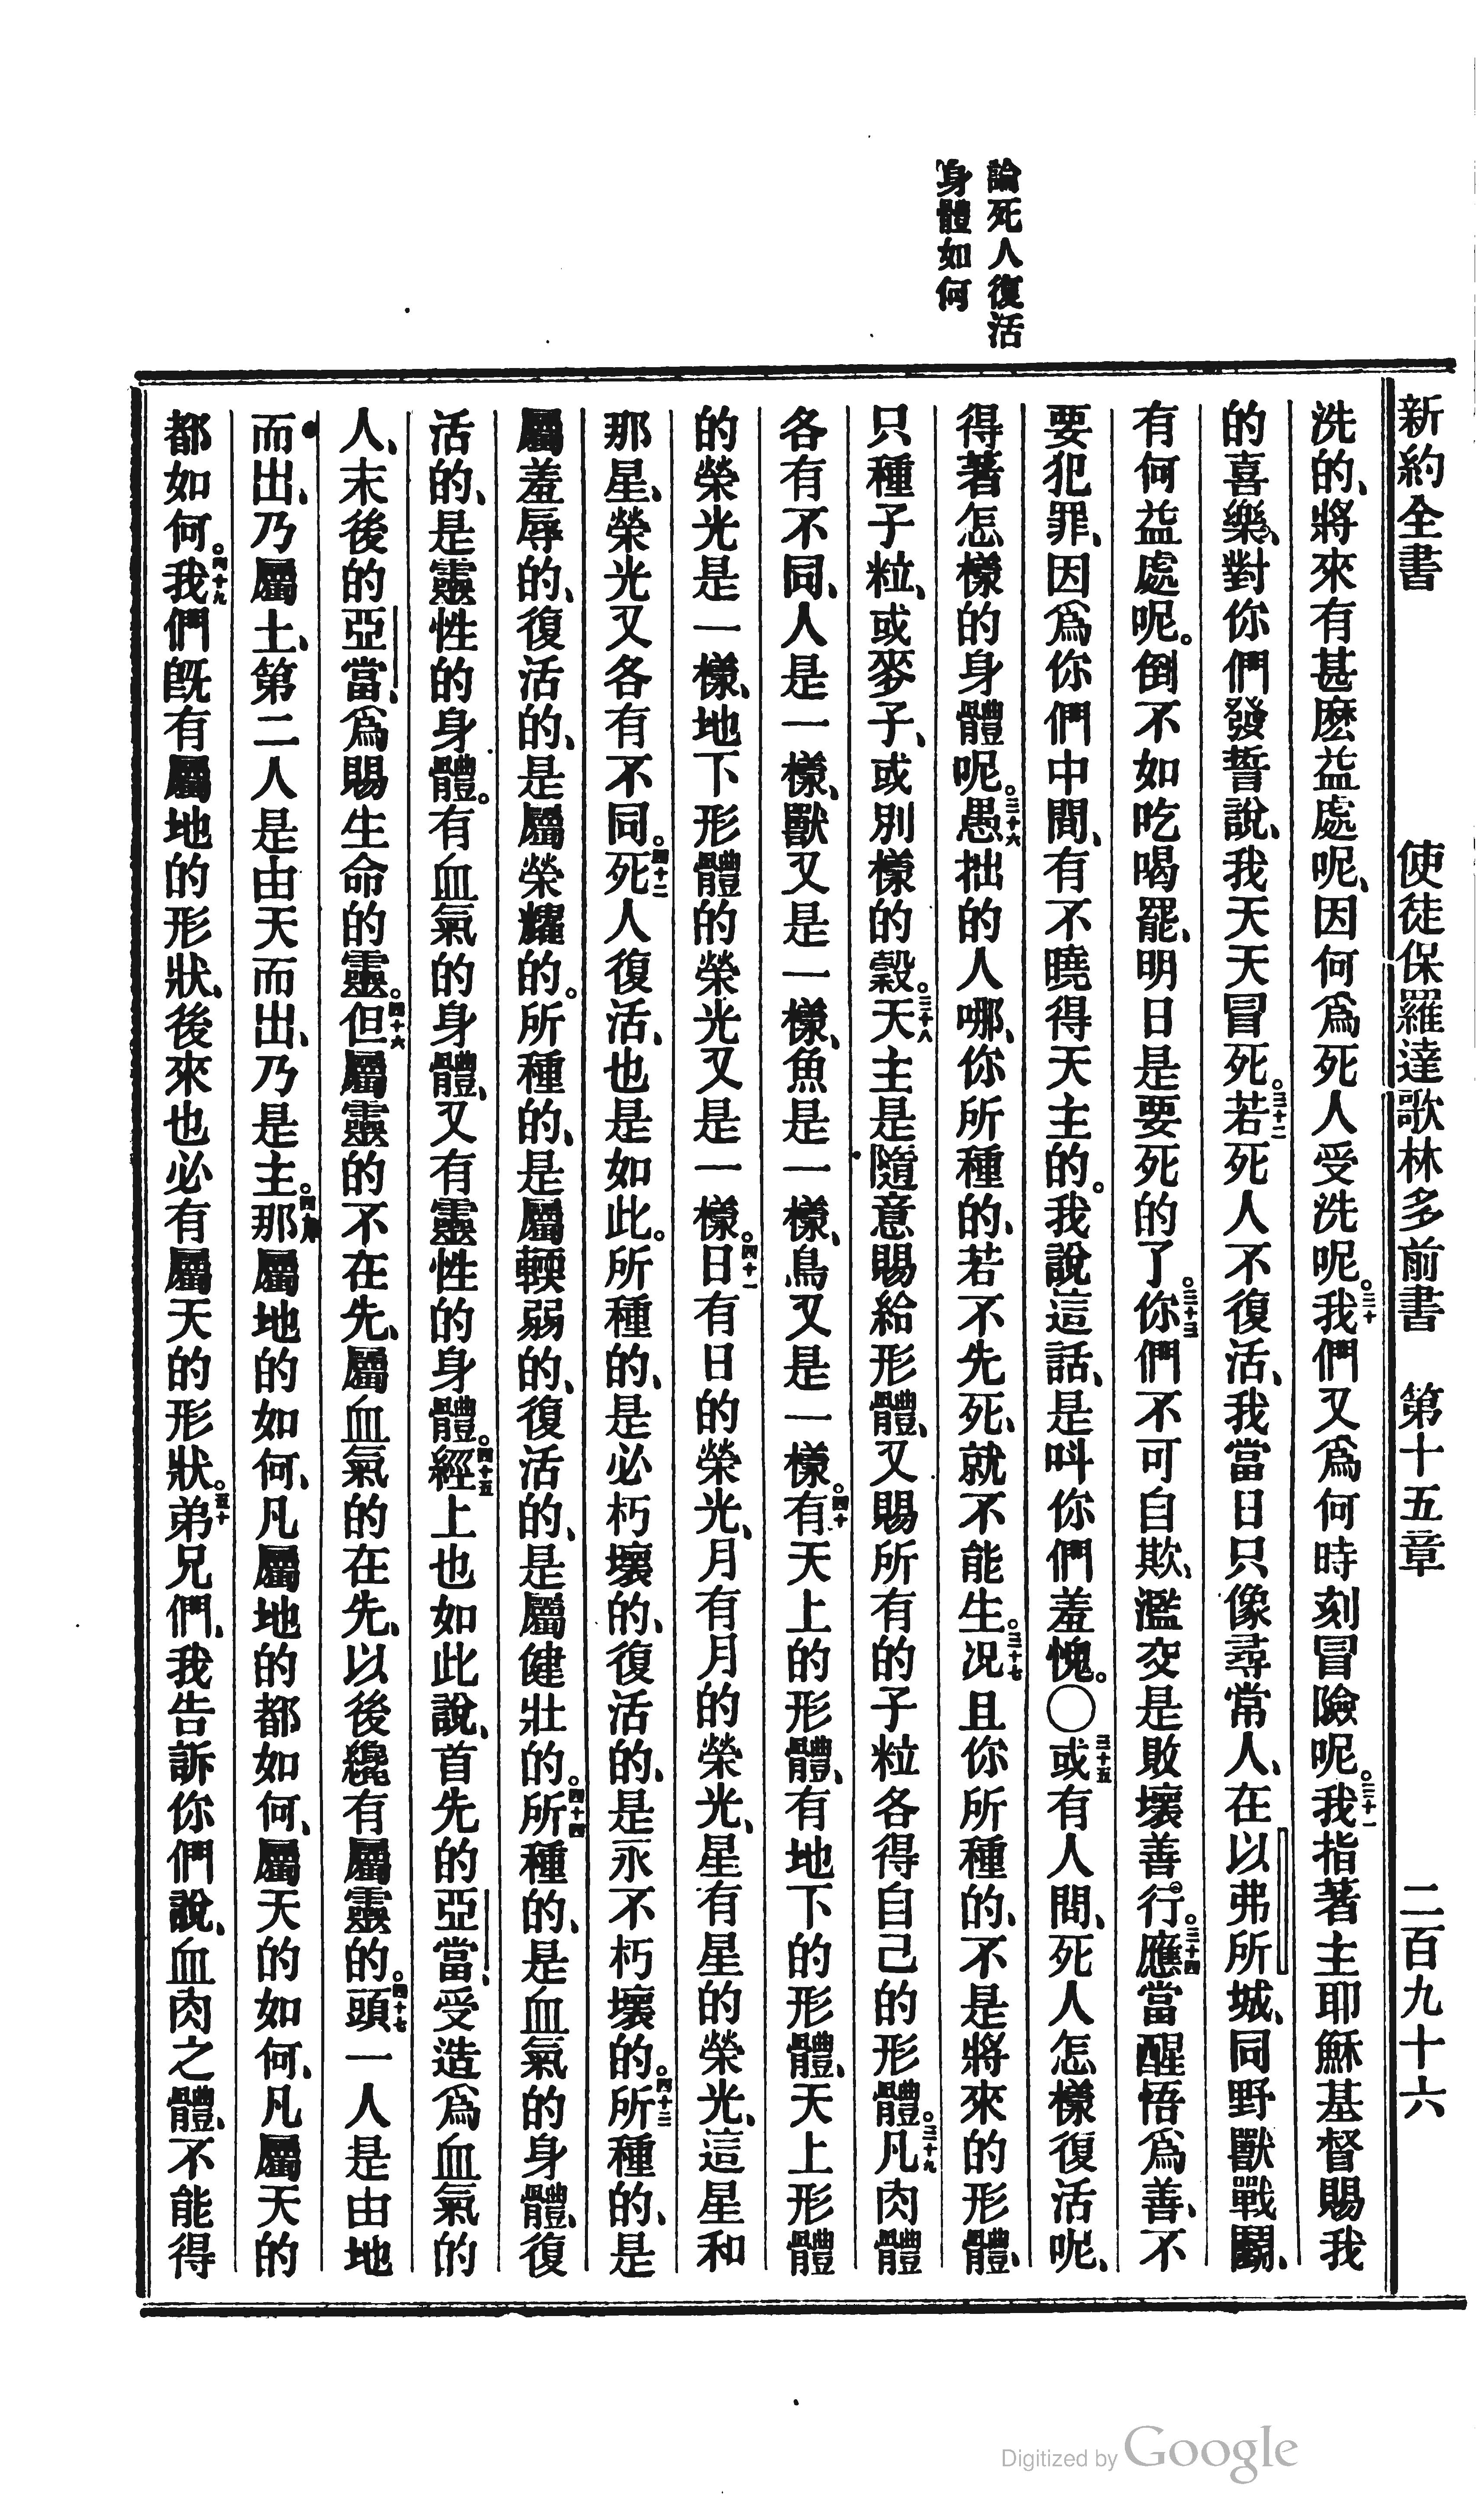 論死人復活
身體如何
新約全書 使徒保羅達歌林多前書 第十五章 二百九十六
洗的、將來有甚麽益處呢、因何爲死人受洗呢。三十我們又爲何時刻冒險呢。三十一我指著主耶穌基督賜我
的喜樂、對你們發誓說、我天天冒死。三十二若死人不復活、我當日只像尋常人、在以弗所城、同野獸戰鬭、
有何益處呢。倒不如吃喝罷、明日是要死的了。三十三你們不可自欺、濫交是敗壞善行。三十四應當醒悟爲善、不
要犯罪、因爲你們中間、有不曉得天主的。我說這話、是呌你們羞愧。〇三十五或有人問、死人怎樣復活呢、
得著怎樣的身體呢。三十六愚拙的人哪、你所種的、若不先死、就不能生。三十七况且你所種的、不是將來的形體、
只種子粒、或麥子、或別樣的穀。三十八天主是隨意賜給形體、又賜所有的子粒各得自己的形體。三十九凡肉體
各有不同、人是一樣、獸又是一樣、魚是一樣、鳥又是一樣。四十有天上的形體、有地下的形體、天上形體
的榮光是一樣、地下形體的榮光又是一樣。四十一日有日的榮光、月有月的榮光、星有星的榮光、這星和
那星、榮光又各有不同。四十二死人復活、也是如此。所種的、是必朽壞的、復活的、是永不朽壞的。四十三所種的、是
屬羞辱的、復活的、是屬榮耀的。所種的、是屬輭弱的、復活的、是屬健壯的。四十四所種的、是血氣的身體、復
活的、是靈性的身體。有血氣的身體、又有靈性的身體。四十五經上也如此說、首先的亞當、受造爲血氣的
人、末後的亞當、爲賜生命的靈。四十六但屬靈的不在先、屬血氣的在先、以後纔有屬靈的。四十七頭一人是由地
而出、乃屬土、第二人是由天而出、乃是主。四十八那屬地的如何、凡屬地的都如何、屬天的如何、凡屬天的
都如何。四十九我們旣有屬地的形狀、後來也必有屬天的形狀。五十弟兄們、我告訴你們說、血肉之體、不能得
Digitized by Google